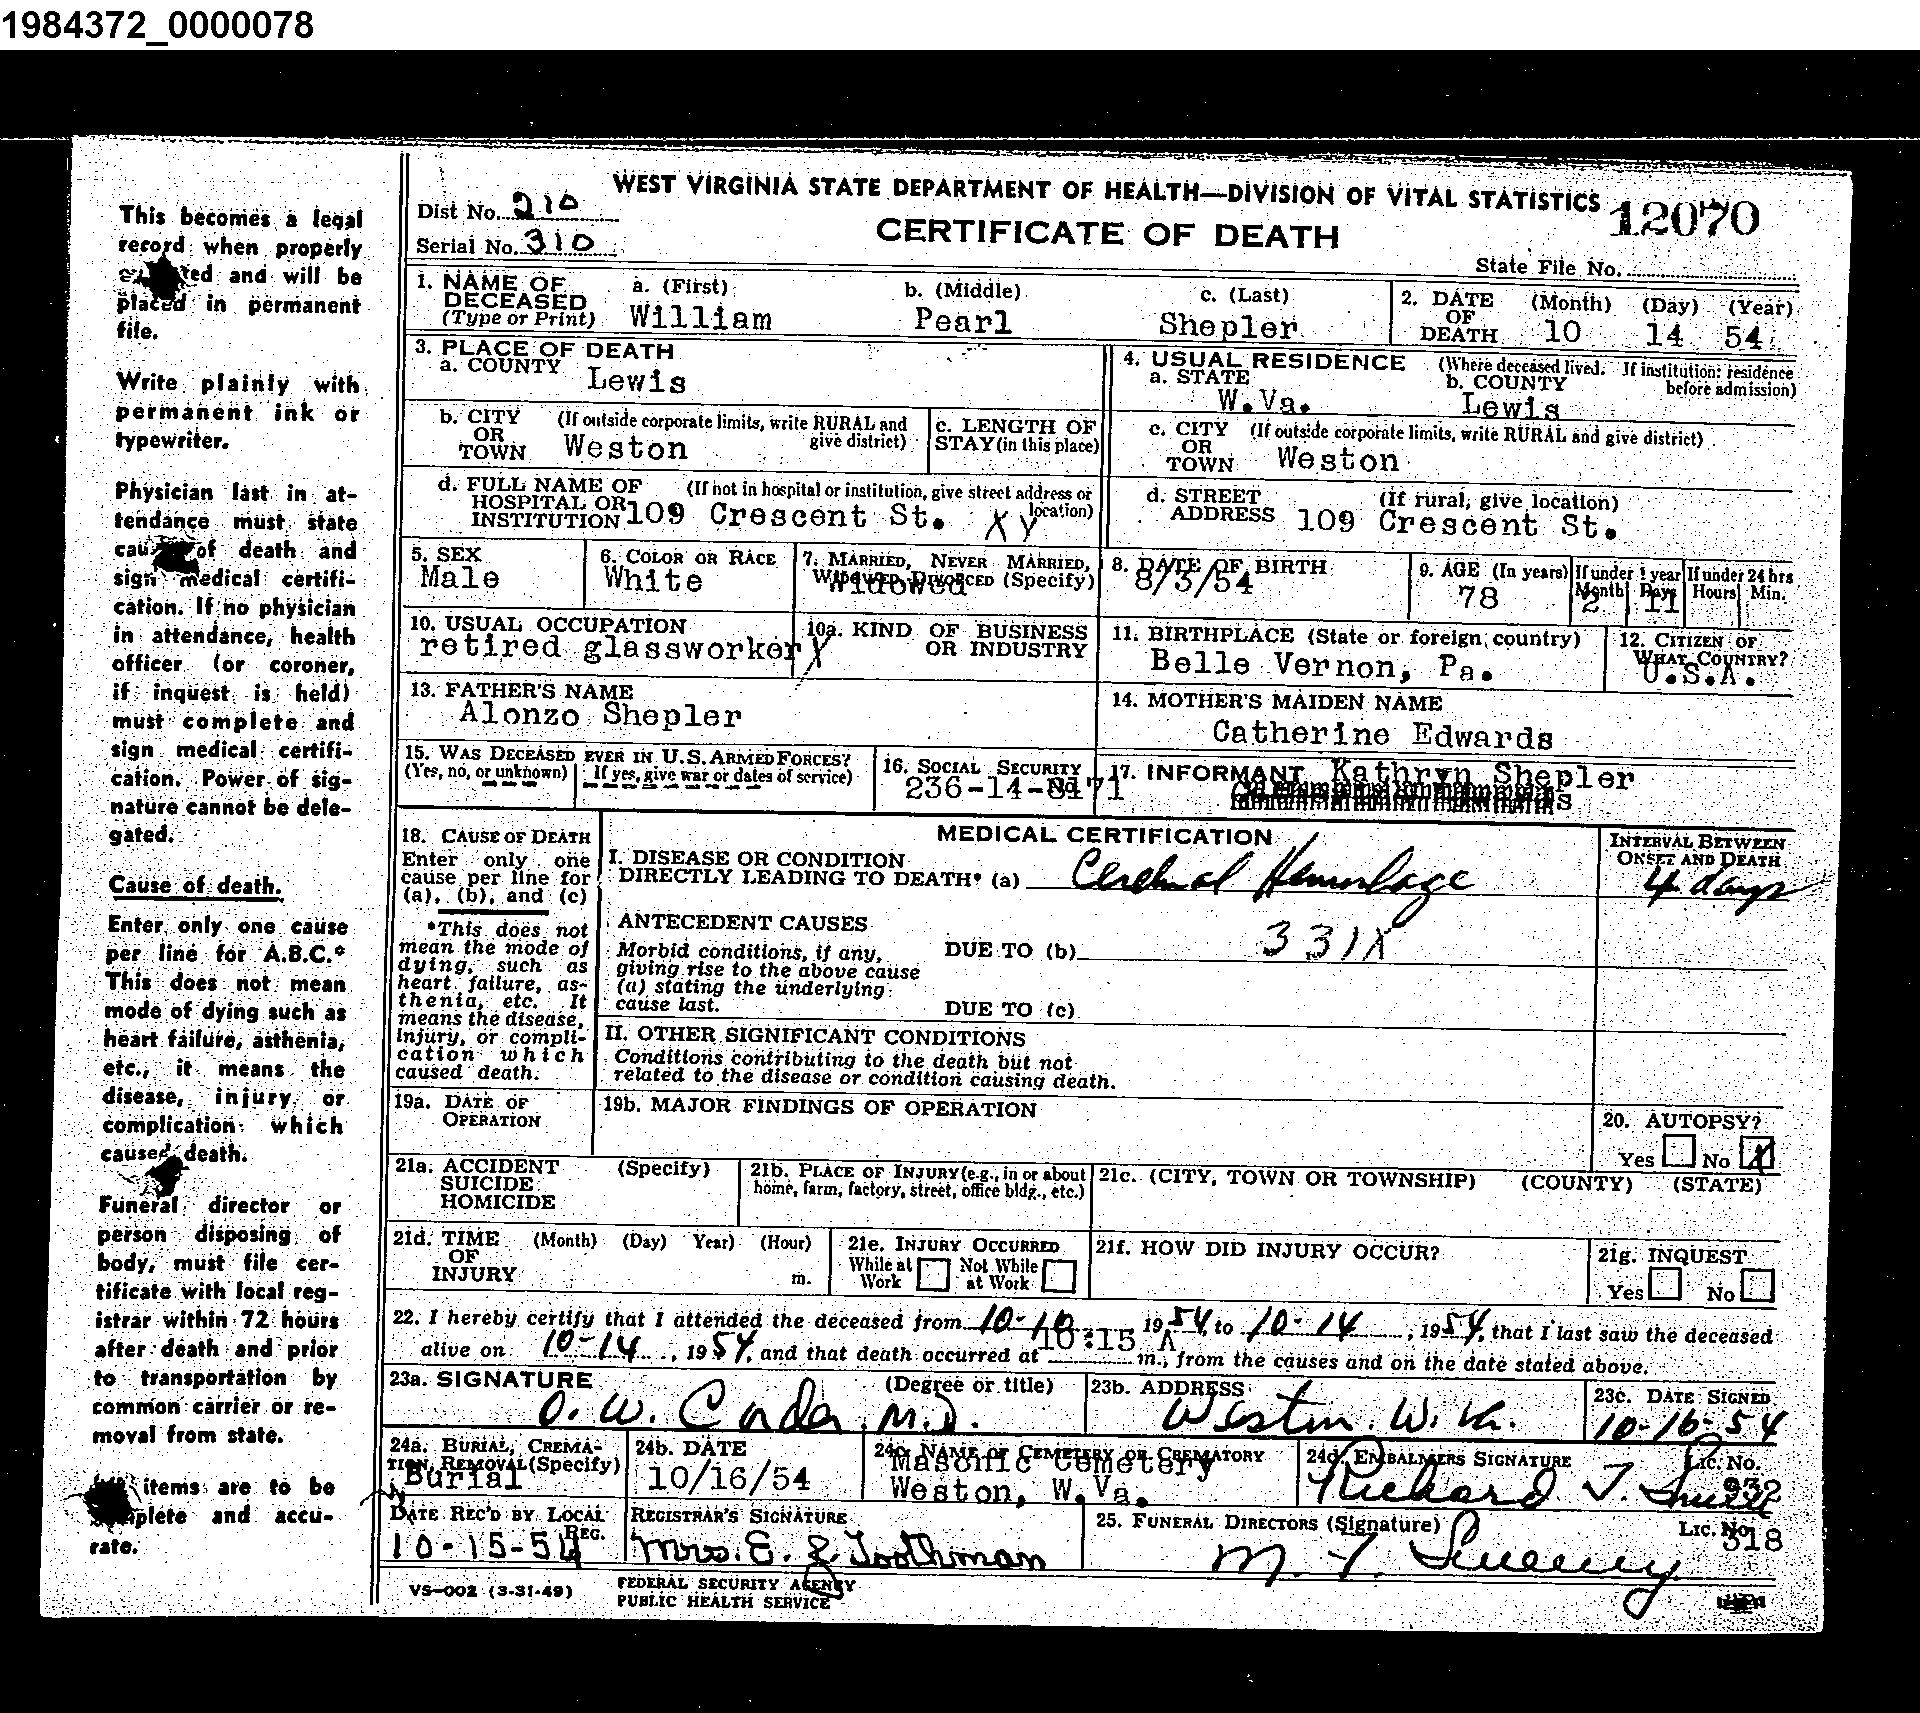 1984372_0000078
WEST VIRGINIA STATE DEPARTMENT OF HEALTH—DIVISION OF VITAL STATISTICS
Dist No. 210
12070
CERTIFICATE OF DEATH
Serial No. 310
State File No.
1. NAME OF DECEASED (Type or Print) a. (First) William b. (Middle) Pearl c. (Last) Shepler
2. DATE OF DEATH (Month) 10 (Day) 14 (Year) 54
3. PLACE OF DEATH
a. COUNTY Lewis
b. CITY OR TOWN (If outside corporate limits, write RURAL and give district) Weston
c. LENGTH OF STAY (in this place)
d. FULL NAME OF HOSPITAL OR INSTITUTION (If not in hospital or institution, give street address or location) 109 Crescent St. XY
4. USUAL RESIDENCE (Where deceased lived. If institution: residence before admission)
a. STATE W.Va. b. COUNTY Lewis
c. CITY OR TOWN (If outside corporate limits, write RURAL and give district) Weston
d. STREET ADDRESS (If rural, give location) 109 Crescent St.
5. SEX Male
6. COLOR OR RACE White
7. MARRIED, NEVER MARRIED, WIDOWED, DIVORCED (Specify) Widowed
8. DATE OF BIRTH 8/3/54
9. AGE (In years) 78 If under 1 year Month 2 Days 11 If under 24 hrs Hours Min.
10. USUAL OCCUPATION retired glassworker Y
10a. KIND OF BUSINESS OR INDUSTRY
11. BIRTHPLACE (State or foreign country) Belle Vernon, Pa.
12. CITIZEN OF WHAT COUNTRY? U.S.A.
13. FATHER'S NAME Alonzo Shepler
14. MOTHER'S MAIDEN NAME Catherine Edwards
15. WAS DECEASED EVER IN U.S. ARMED FORCES? (Yes, no, or unknown) --- If yes, give war or dates of service) -------
16. SOCIAL SECURITY No. 236-14-8171
17. INFORMANT Kathryn Shepler
18. CAUSE OF DEATH
Enter only one cause per line for (a), (b), and (c)
*This does not mean the mode of dying, such as heart failure, asthenia, etc. It means the disease, injury, or complication which caused death.
MEDICAL CERTIFICATION
I. DISEASE OR CONDITION DIRECTLY LEADING TO DEATH* (a) Cerebral Hemorhage
INTERVAL BETWEEN ONSET AND DEATH 4 days
ANTECEDENT CAUSES
Morbid conditions, if any, giving rise to the above cause (a) stating the underlying cause last.
DUE TO (b) 331X
DUE TO (c)
II. OTHER SIGNIFICANT CONDITIONS
Conditions contributing to the death but not related to the disease or condition causing death.
19a. DATE OF OPERATION
19b. MAJOR FINDINGS OF OPERATION
20. AUTOPSY? Yes No X
21a. ACCIDENT SUICIDE HOMICIDE (Specify)
21b. PLACE OF INJURY (e.g., in or about home, farm, factory, street, office bldg., etc.)
21c. (CITY, TOWN OR TOWNSHIP) (COUNTY) (STATE)
21d. TIME OF INJURY (Month) (Day) Year) (Hour) m.
21e. INJURY OCCURRED While at Work Not While at Work
21f. HOW DID INJURY OCCUR?
21g. INQUEST Yes No
22. I hereby certify that I attended the deceased from 10-10 1954, to 10-14, 1954, that I last saw the deceased
alive on 10-14, 1954, and that death occurred at 10:15 A m., from the causes and on the date stated above.
23a. SIGNATURE (Degree or title) O. W. Corder, M.D.
23b. ADDRESS Weston. W. Va.
23c. DATE SIGNED 10-16-54
24a. BURIAL, CREMATION, REMOVAL (Specify) Burial
24b. DATE 10/16/54
24c. NAME OF CEMETERY OR CREMATORY Masonic Cemetery
Weston, W.Va.
24d. EMBALMERS SIGNATURE Richard T. Lic. No. 932
DATE REC'D BY LOCAL REG. 10-15-54
REGISTRAR'S SIGNATURE Mrs. E. L. Toothman
25. FUNERAL DIRECTORS (Signature) M. T. Sweeny Lic. No. 318
VS-002 (3-31-49)
FEDERAL SECURITY AGENCY
PUBLIC HEALTH SERVICE
This becomes a legal
record when properly
and will be
placed in permanent
file.
Write plainly with
permanent ink or
typewriter.
Physician last in at-
tendance must state
of death and
sign medical certifi-
cation. If no physician
in attendance, health
officer (or coroner,
if inquest is held)
must complete and
sign medical certifi-
cation. Power of sig-
nature cannot be dele-
gated.
Cause of death.
Enter only one cause
per line for A.B.C.*
This does not mean
mode of dying such as
heart failure, asthenia,
etc., it means the
disease, injury, or
complication which
caused death.
Funeral director or
person disposing of
body, must file cer-
tificate with local reg-
istrar within 72 hours
after death and prior
to transportation by
common carrier or re-
moval from state.
items are to be
and accu-
rate.